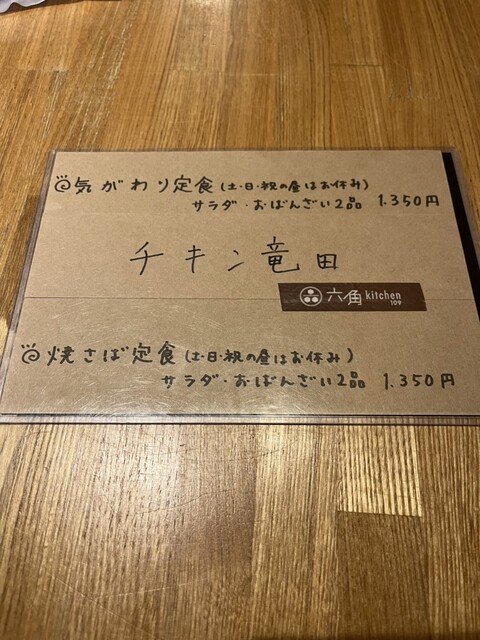 気がわり定食(土・日・祝の昼はお休み)
サラダ・おばんざい2品 1.350円
チキン竜田
六角 kitchen 109
焼さば定食(土・日・祝の昼はお休み)
サラダ・おばんざい2品 1.350円